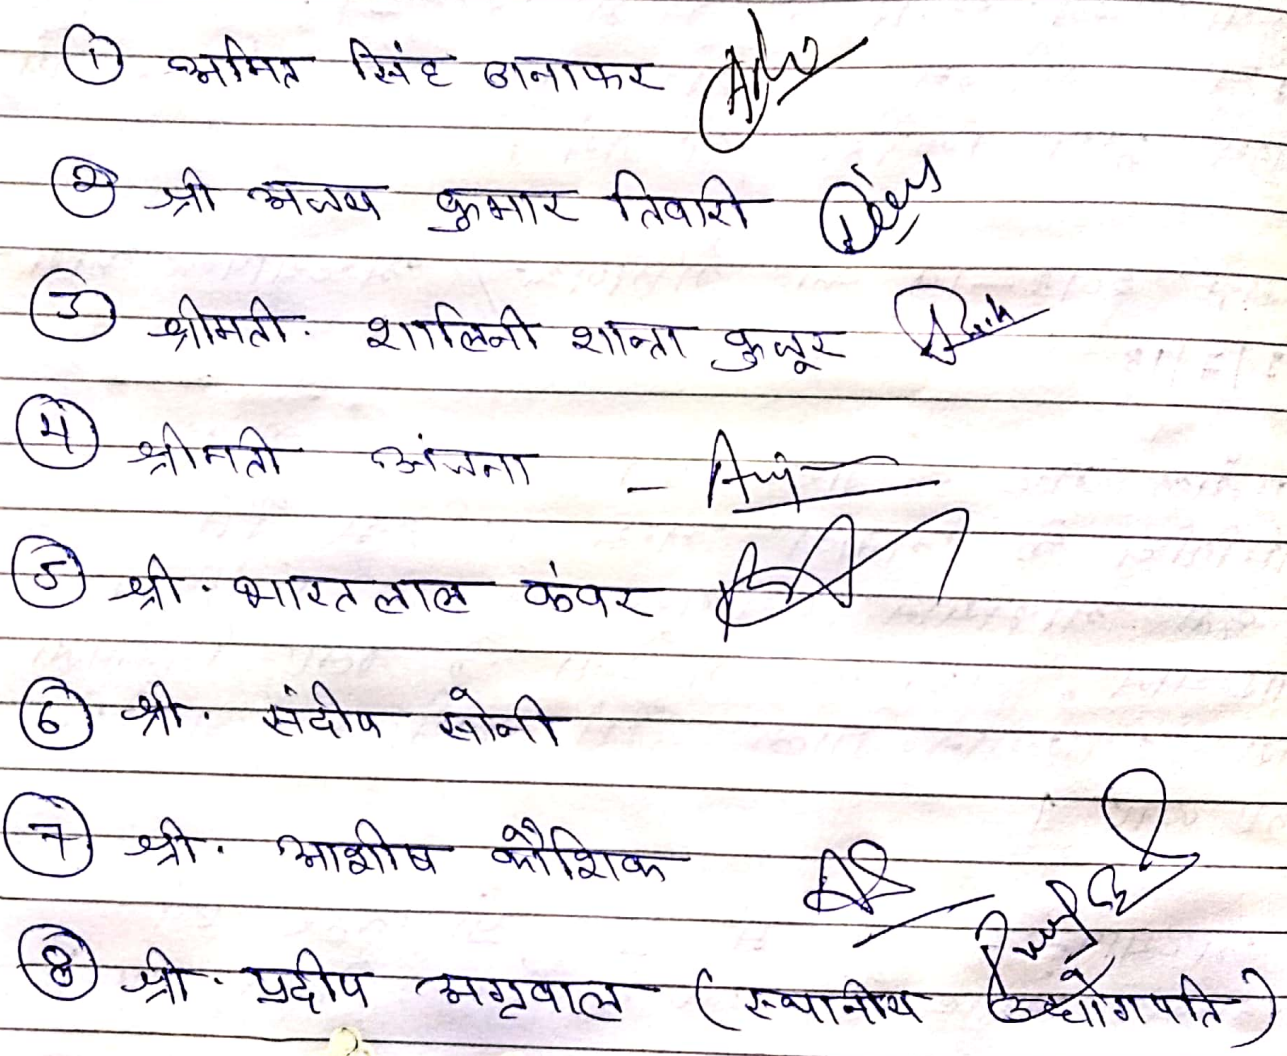 ① अमित सिंह बनाफर
② श्री अजय कुमार तिवारी
③ श्रीमती. शालिनी शान्ता कुजूर
④ श्रीमती अंजना -
⑤ श्री. भारतलाल कंवर
⑥ श्री. संदीप सोनी
⑦ श्री. आशीष कौशिक
⑧ श्री. प्रदीप अग्रवाल (स्थानीय उद्योगपति)